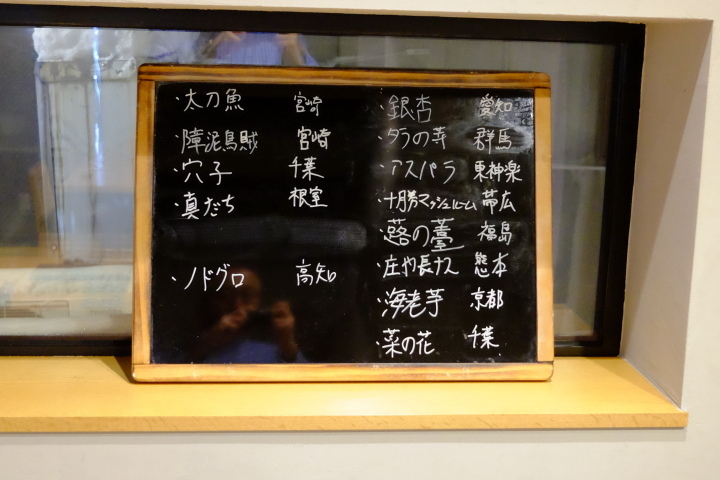 ・太刀魚 宮崎
・障泥烏賊 宮崎
・穴子 千葉
・真だち 根室
・ノドグロ 高知
・銀杏 愛知
・タラの芽 群馬
・アスパラ 東神楽
・十勝マッシュルーム 帯広
・蕗の薹 福島
・庄や長ナス 熊本
・海老芋 京都
・菜の花 千葉